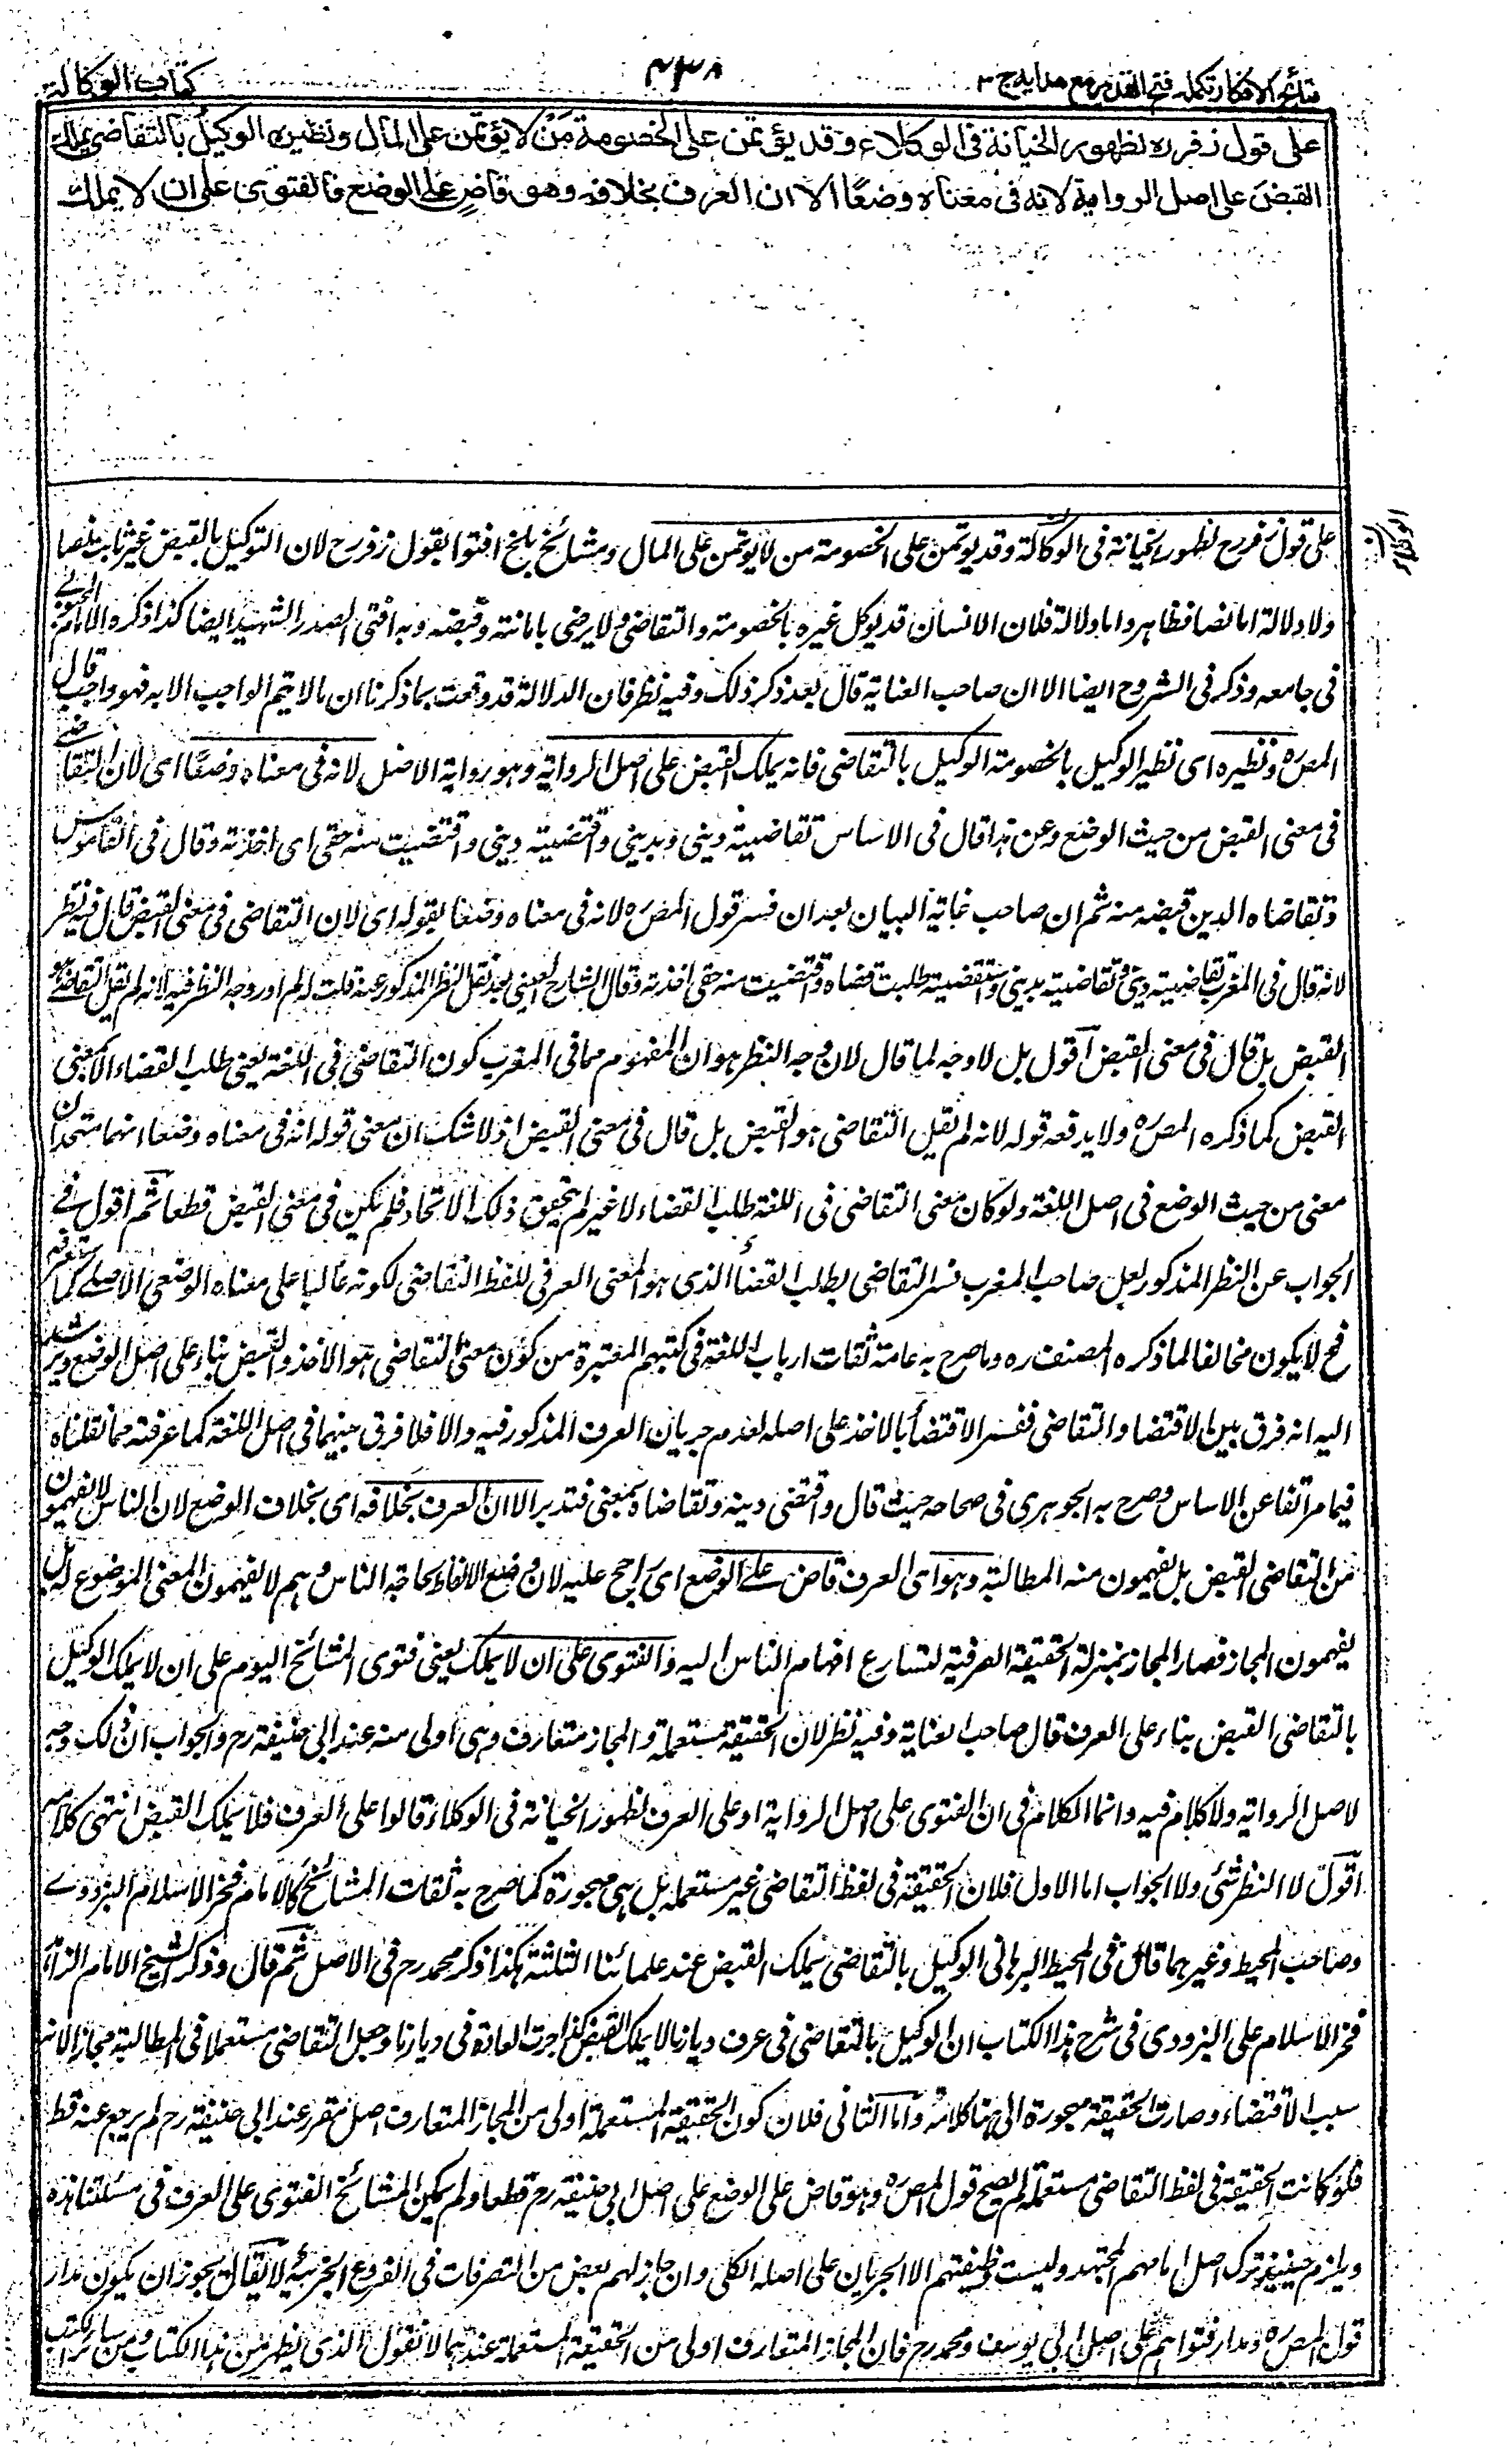 نتائج الافكار تكمله فتح القدير مع هدايه ج ٣
٤٣٨
كتاب الوكالة
على قول زفر ره لظهور الخيانة فى الوكلاء وقد يؤتمن على الخصومة من لا يؤتمن على المال ونظيره الوكيل بالتقاضى يملك
القبض على اصل الرواية لانه فى معناه وضعًا الا ان العرف بخلافه وهو قاضٍ على الوضع فالفتوى على ان لا يملك
على قول زفر رح لظهور الخيانة فى الوكالة وقد يوتمن على الخصومة من لا يوتمن على المال ومشائخ بلخ افتوا بقول زفر رح لان التوكيل بالقبض غير ثابت نصا
ولا دلالة اما نصا فظاهر واما دلالة فلان الانسان قد يوكل غيره بالخصومة والتقاضى ولا يرضى بامانته وقبضه وبه افتى الصدر الشهيد ايضا كذا ذكره الامام المحبوبى
فى جامعه وذكر فى الشروح ايضا الا ان صاحب العناية قال بعد ذكر ذلك وفيه نظر فان الدلالة قد وقعت بما ذكرنا ان ما لا يتم الواجب الا به فهو واجب قال
المصره ونظيره اى نظير الوكيل بالخصومة الوكيل بالتقاضى فانه يملك القبض على اصل الرواية وهو رواية الاصل لانه فى معناه وضعًا اى لان التقاضى
فى معنى القبض من حيث الوضع وعن هذا قال فى الاساس تقاضيته دينى وبدينى واقتضيته دينى واقتضيت منه حقى اى اخذته وقال فى القاموس
وتقاضاه الدين قبضه منه ثم ان صاحب غاية البيان بعد ان فسر قول المصره لانه فى معناه وضعا بقوله اى لان التقاضى فى معنى القبض قال فيه نظر
لانه قال فى المغرب تقاضيته دينى وتقاضيته بدينى واستقضيته طلبت قضاه واقتضيت منه حقى اخذته وقال الشارح العينى بعد نقل النظر المذكور عنه قلت له لم ادر وجه النظر فيه لانه لم يقل التقاضى هو
القبض بل قال فى معنى القبض اقول بل لا وجه لما قال لان وجه النظر هو ان المفهوم مما فى المغرب كون التقاضى فى اللغة بمعنى طلب القضاء لا بمعنى
القبض كما ذكره المصره ولا يدفعه قوله لانه لم يقل التقاضى هو القبض بل قال فى معنى القبض اذ لا شك ان معنى قوله انه فى معناه وضعا انهما متحدان
معنى من حيث الوضع فى اصل اللغة ولو كان معنى التقاضى فى اللغة طلب القضاء لا غير لم يتحقق ذلك الاتحاد فلم يكن فى معنى القبض قطعا ثم اقول فى
الجواب عن النظر المذكور لعل صاحب المغرب فسر التقاضى بطلب القضأ الذى هو المعنى العرفى للفظ التقاضى لكونه غالبا على معناه الوضعى الاصلى كما ستعرفه
فح لا يكون مخالفا لما ذكره المصنف ره وما صرح به عامة ثقات ارباب اللغة فى كتبهم المعتبرة من كون معنى التقاضى هو الاخذ والقبض بناء على اصل الوضع ويرشد
اليه انه فرق بين الاقتضا والتقاضى ففسر الاقتضأ بالاخذ على اصله لعدم جريان العرف المذكور فيه والا فلا فرق بينهما فى اصل اللغة كما عرفته مما نقلناه
فيما مر آنفا عن الاساس وصرح به الجوهرى فى صحاحه حيث قال واقتضى دينه وتقاضاه بمعنى فتدبر الا ان العرف بخلافه اى بخلاف الوضع لان الناس لا يفهمون
من التقاضى القبض بل يفهمون منه المطالبة وهو اى العرف قاض على الوضع اى راجح عليه لان وضع الالفاظ لحاجة الناس وهم لا يفهمون المعنى الموضوع له بل
يفهمون المجاز فصار المجاز بمنزلة الحقيقة العرفية لتسارع افهام الناس اليه والفتوى على ان لا يملك يعنى فتوى المشائخ اليوم على ان لا يملك الوكيل
بالتقاضى القبض بناء على العرف قال صاحب العناية وفيه نظر لان الحقيقة مستعملة والمجاز متعارف وهى اولى منه عند ابى حنيفة رح والجواب ان ذلك وجه
لاصل الرواية ولا كلام فيه وانما الكلام فى ان الفتوى على اصل الرواية او على العرف لظهور الخيانة فى الوكلاء قالوا على العرف فلا يملك القبض انتهى كلامه
اقول لا النظر شئ ولا الجواب اما الاول فلان الحقيقة فى لفظ التقاضى غير مستعملة بل هى مهجورة كما صرح به ثقات المشائخ كالامام فخر الاسلام البزدوى
وصاحب المحيط وغيرهما قال فى المحيط البرهانى الوكيل بالتقاضى يملك القبض عند علمائنا الثلثة هكذا ذكر محمد رح فى الاصل ثم قال وذكر الشيخ الامام الزاهد
فخر الاسلام على البزدوى فى شرح هذا الكتاب ان الوكيل بالتقاضى فى عرف ديارنا لا يملك القبض كذا جرت العادة فى ديارنا وجعل التقاضى مستعملا فى المطالبة مجازا لانه
سبب الاقتضاء وصارت الحقيقة مهجورة الى هنا كلامه واما الثانى فلان كون الحقيقة المستعملة اولى من المجاز المتعارف اصل متقرر عند ابى حنيفة رح لم يرجع عنه قط
فلو كانت الحقيقة فى لفظ التقاضى مستعملة لم يصح قول المصره وهو قاض على الوضع على اصل ابى حنيفة رح قطعا ولم يكن المشائخ الفتوى على العرف فى مسئلتنا هذه
ويلزم حينئذ ترك اصل امامهم المجتهد وليست وظيفتهم الا الجريان على اصله الكلى وان جاز لهم بعض من التصرفات فى الفروع الجزئية لا يقال يجوز ان يكون مدار
قول المصره ومدار فتواهم على اصل ابى يوسف ومحمد رح فان المجاز المتعارف اولى من الحقيقة المستعملة عندهما لانا نقول الذى يظهر من هذا الكتاب ومن سائر الكتب